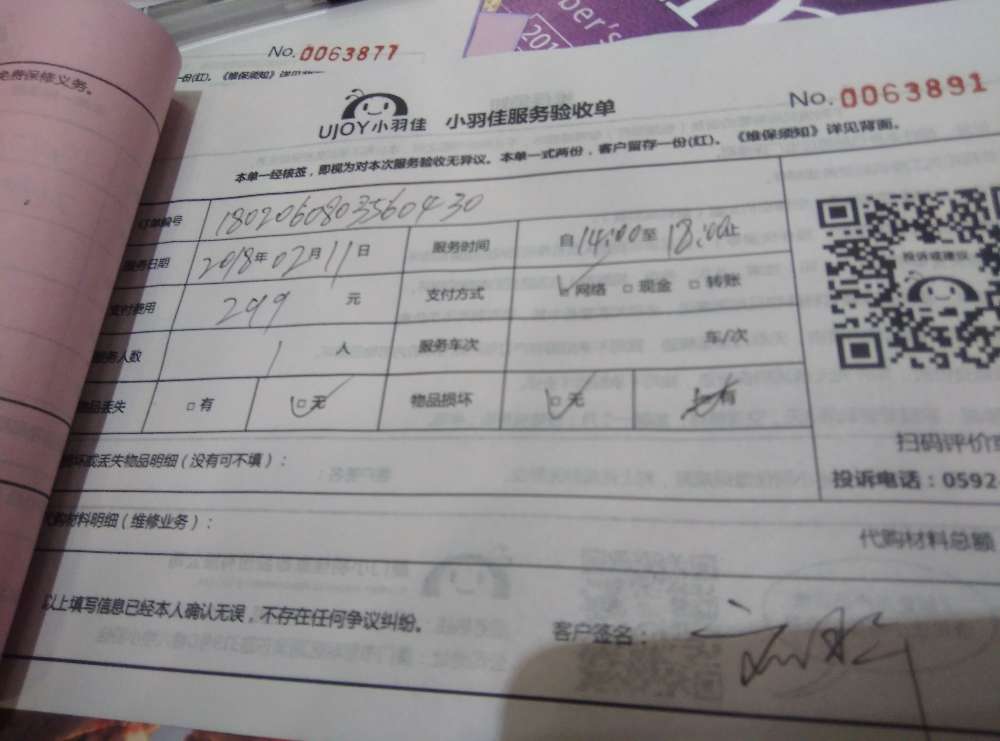 免费保修义务。
No. 0063877
一份(红)。《维保须知》详见背面
ber's
201
UJOY小羽佳 小羽佳服务验收单
No. 0063891
本单一经核签，即视为对本次服务验收无异议。本单一式两份，客户留存一份(红)。《维保须知》详见背面。
订单编号 1802060803560430
服务日期 2018年02月11日 服务时间 自14:00至18:00止
支付费用 299元 支付方式 网络 □现金 □转账
服务人数 1人 服务车次 车/次
物品丢失 □有 □无 物品损坏 □无 有
投诉或建议
扫码评价或
投诉电话：0592-
损坏或丢失物品明细（没有可不填）：
代购材料明细（维修业务）：
代购材料总额
以上填写信息已经本人确认无误，不存在任何争议纠纷。
客户签名：